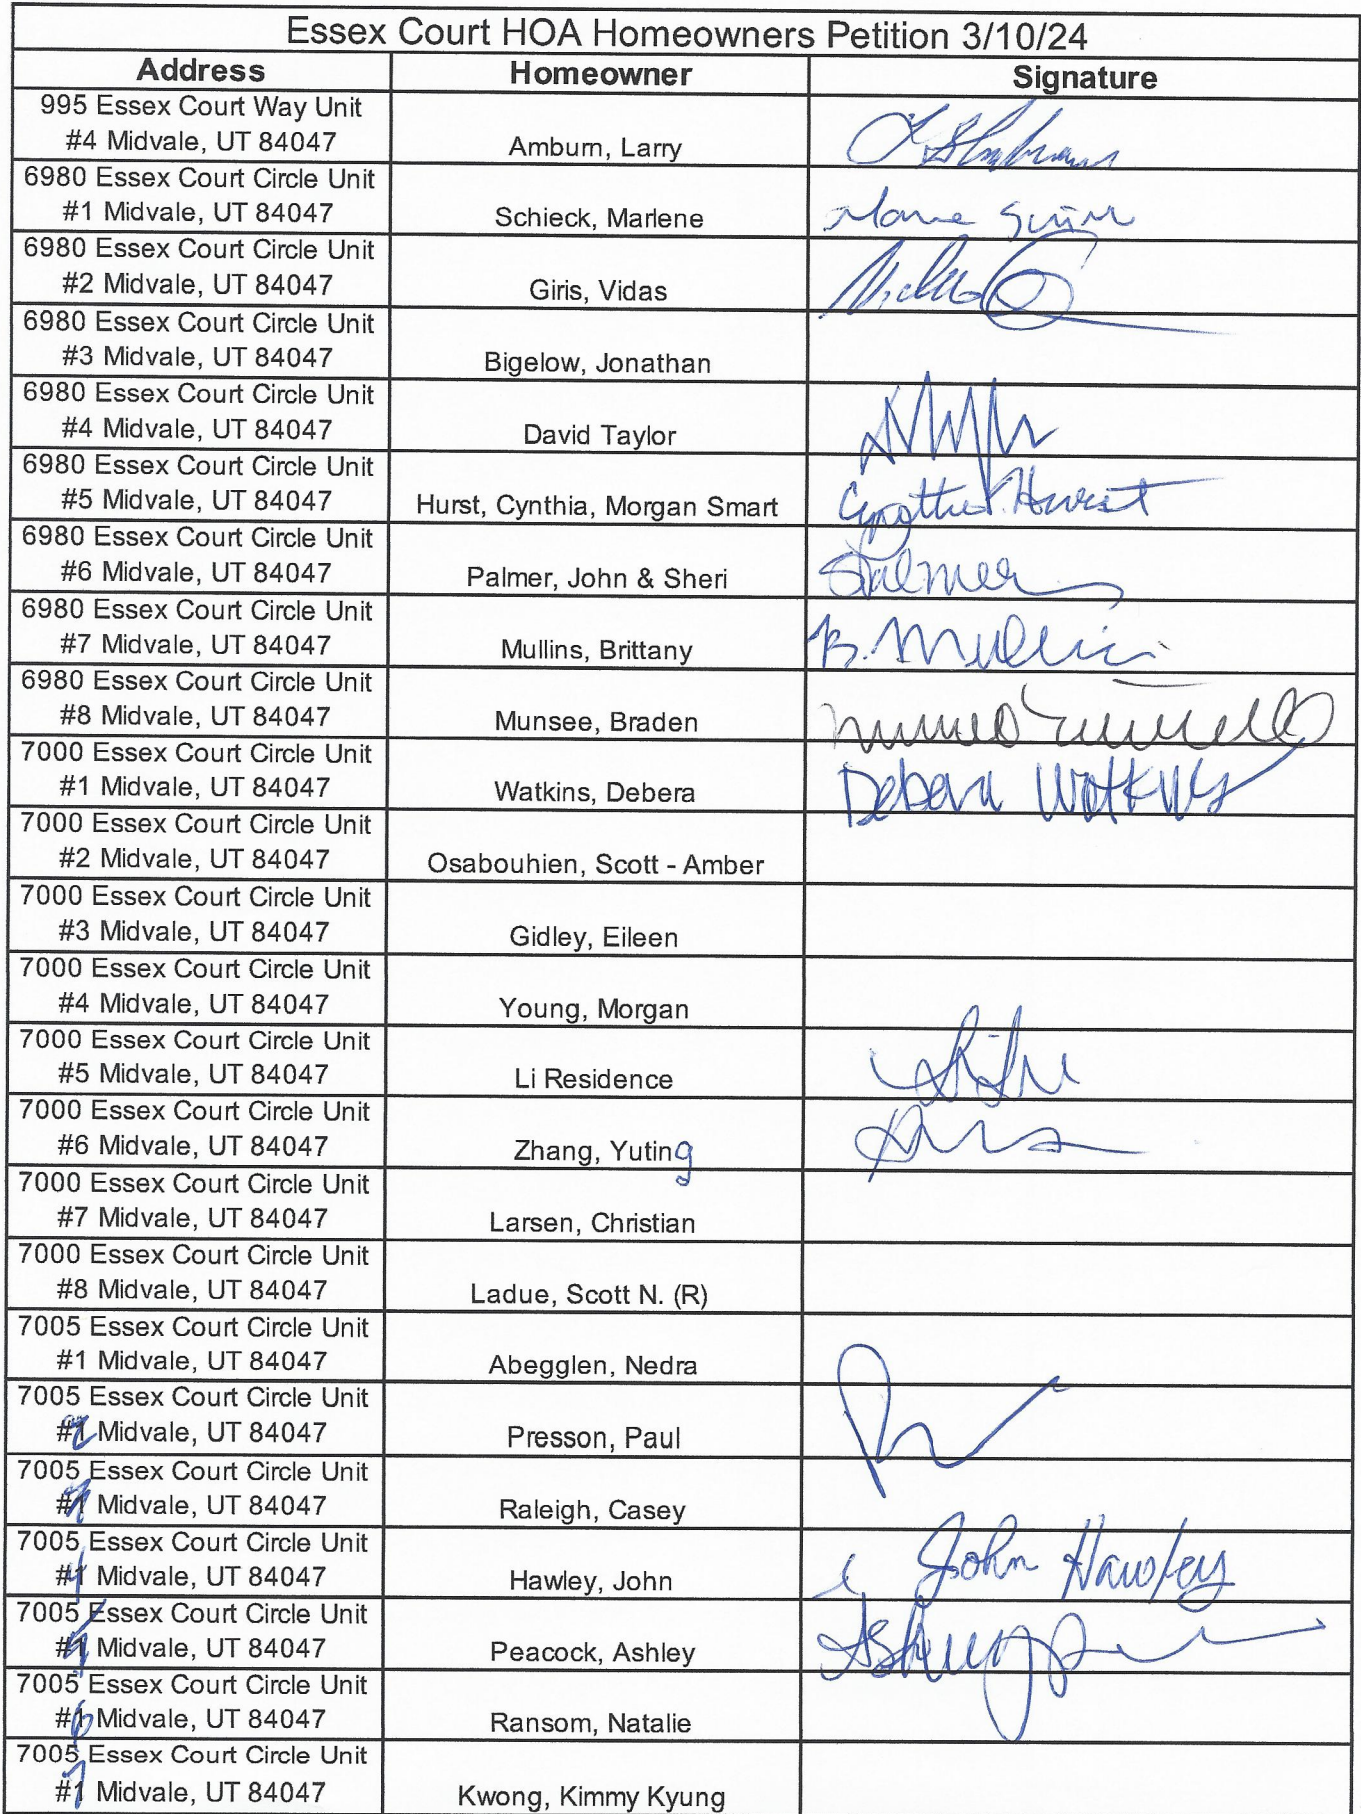 Essex Court HOA Homeowners Petition 3/10/24
Address Homeowner Signature
995 Essex Court Way Unit
#4 Midvale, UT 84047 Amburn, Larry
6980 Essex Court Circle Unit
#1 Midvale, UT 84047 Schieck, Marlene
6980 Essex Court Circle Unit
#2 Midvale, UT 84047 Giris, Vidas
6980 Essex Court Circle Unit
#3 Midvale, UT 84047 Bigelow, Jonathan
6980 Essex Court Circle Unit
#4 Midvale, UT 84047 David Taylor
6980 Essex Court Circle Unit
#5 Midvale, UT 84047 Hurst, Cynthia, Morgan Smart Cynthia Hurst
6980 Essex Court Circle Unit
#6 Midvale, UT 84047 Palmer, John & Sheri SPalmer
6980 Essex Court Circle Unit
#7 Midvale, UT 84047 Mullins, Brittany B. Mullins
6980 Essex Court Circle Unit
#8 Midvale, UT 84047 Munsee, Braden
7000 Essex Court Circle Unit
#1 Midvale, UT 84047 Watkins, Debera Debera Watkins
7000 Essex Court Circle Unit
#2 Midvale, UT 84047 Osabouhien, Scott - Amber
7000 Essex Court Circle Unit
#3 Midvale, UT 84047 Gidley, Eileen
7000 Essex Court Circle Unit
#4 Midvale, UT 84047 Young, Morgan
7000 Essex Court Circle Unit
#5 Midvale, UT 84047 Li Residence
7000 Essex Court Circle Unit
#6 Midvale, UT 84047 Zhang, Yuting
7000 Essex Court Circle Unit
#7 Midvale, UT 84047 Larsen, Christian
7000 Essex Court Circle Unit
#8 Midvale, UT 84047 Ladue, Scott N. (R)
7005 Essex Court Circle Unit
#1 Midvale, UT 84047 Abegglen, Nedra
7005 Essex Court Circle Unit
#2 Midvale, UT 84047 Presson, Paul
7005 Essex Court Circle Unit
#3 Midvale, UT 84047 Raleigh, Casey
7005 Essex Court Circle Unit
#4 Midvale, UT 84047 Hawley, John John Hawley
7005 Essex Court Circle Unit
#5 Midvale, UT 84047 Peacock, Ashley
7005 Essex Court Circle Unit
#6 Midvale, UT 84047 Ransom, Natalie
7005 Essex Court Circle Unit
#7 Midvale, UT 84047 Kwong, Kimmy Kyung